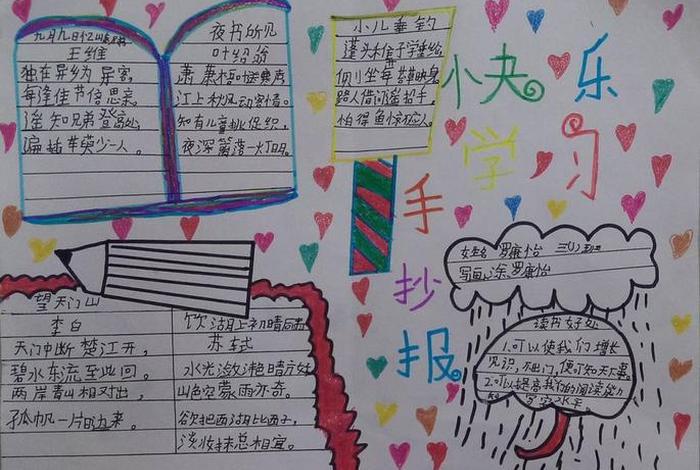 九月九日忆山东兄弟
王维
独在异乡为异客，
每逢佳节倍思亲。
遥知兄弟登高处，
遍插茱萸少一人。
夜书所见
叶绍翁
萧萧梧叶送寒声
江上秋风动客情。
知有儿童挑促织，
夜深篱落一灯明。
小儿垂钓
蓬头稚子学垂纶
侧坐莓苔草映身
路人借问遥招手，
怕得鱼惊不应人。
小央乐
学习
手
抄
报
姓名 罗
三(1)班
写画:涂 罗
望天门山
李白
天门中断楚江开，
碧水东流至此回。
两岸青山相对出，
孤帆一片日边来。
饮湖上初晴后雨
苏轼
水光潋滟晴方好
山色空蒙雨亦奇。
欲把西湖比西子，
淡妆抹总相宜。
读书好处
1.可以使我们增长
见识，不出门，便可知天下事
2.可以提高我们的阅读能力
和写字水平